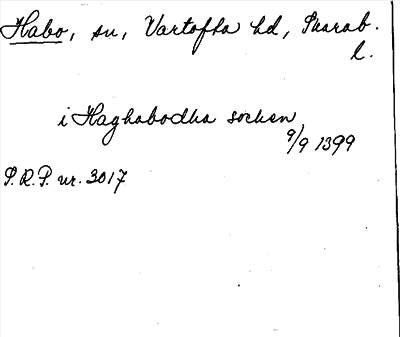 Habo, sn, Vartofta hd, Skarab.
l.
i Haghabodha socken
9/9 1399
S.R.P. nr. 3017